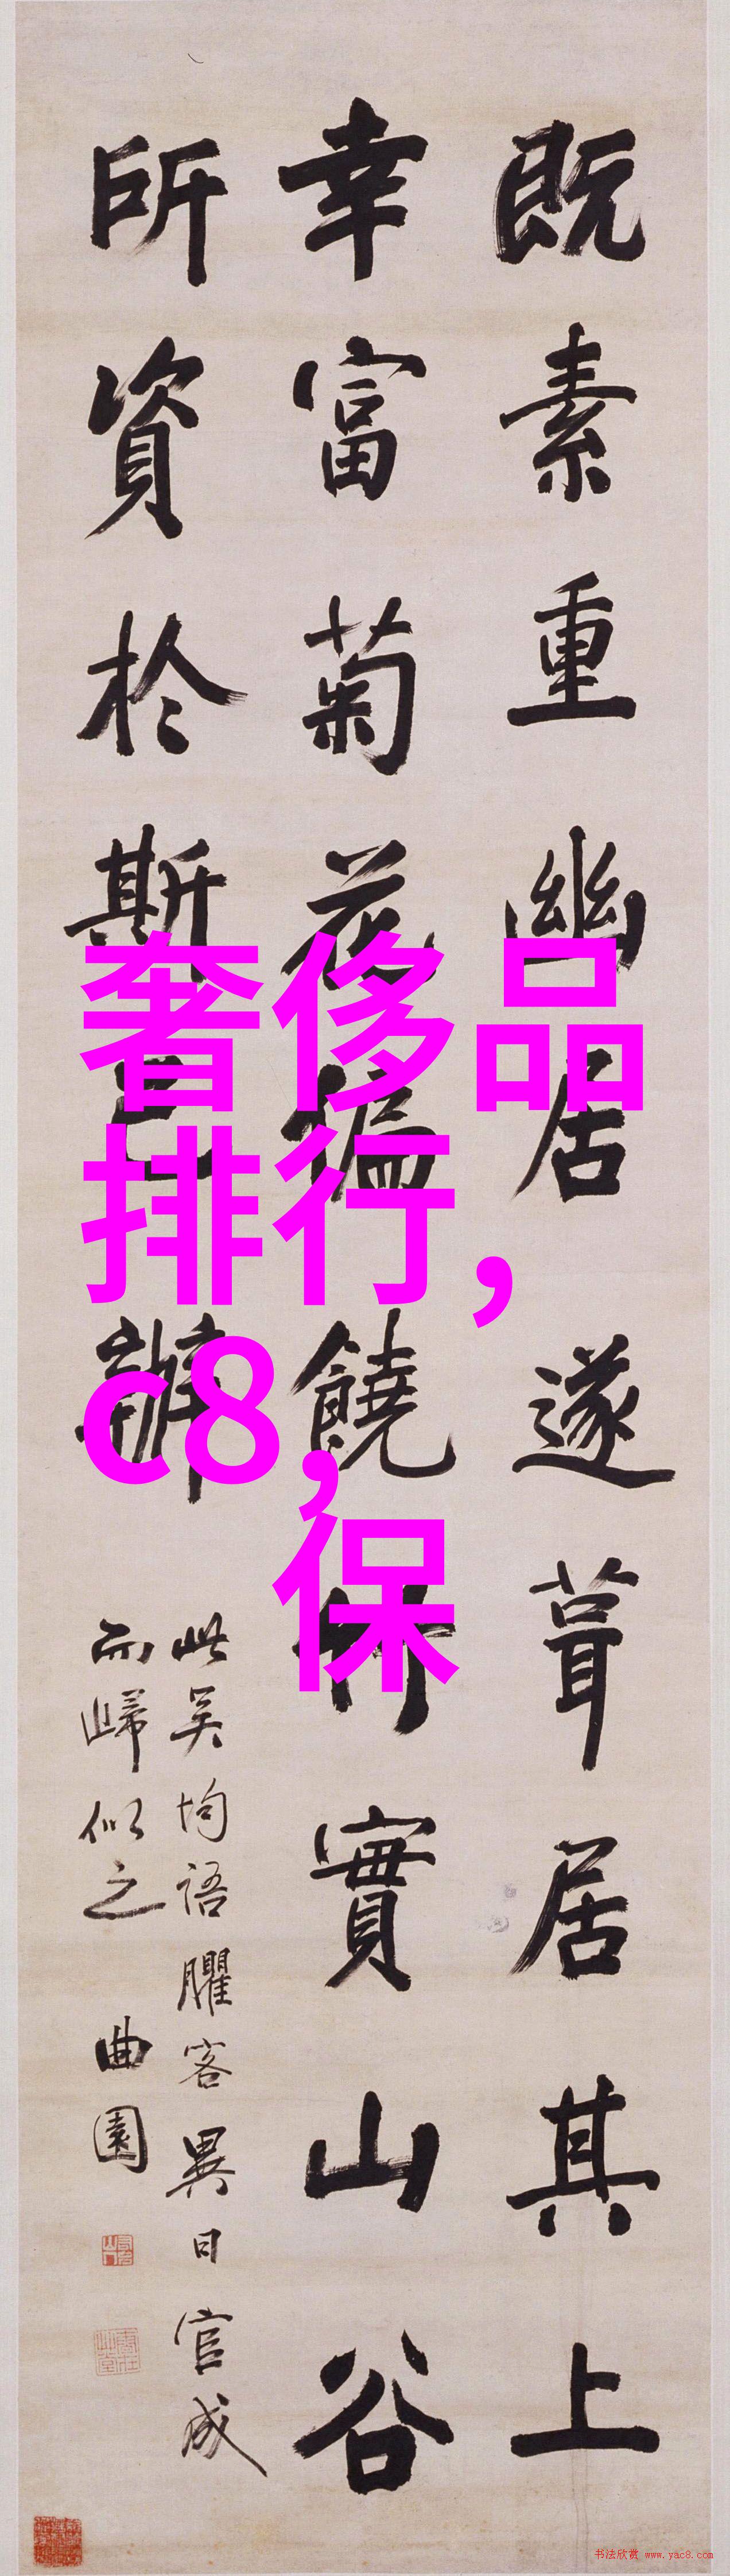 既素重幽居遂葺居其上
幸富菊花偏饒竹實山谷
所資於斯已辦
此吴均語臞客異日官成
而歸似之
曲園
奢侈品
排行,
c8,
保
书法欣赏 www.yac8.com